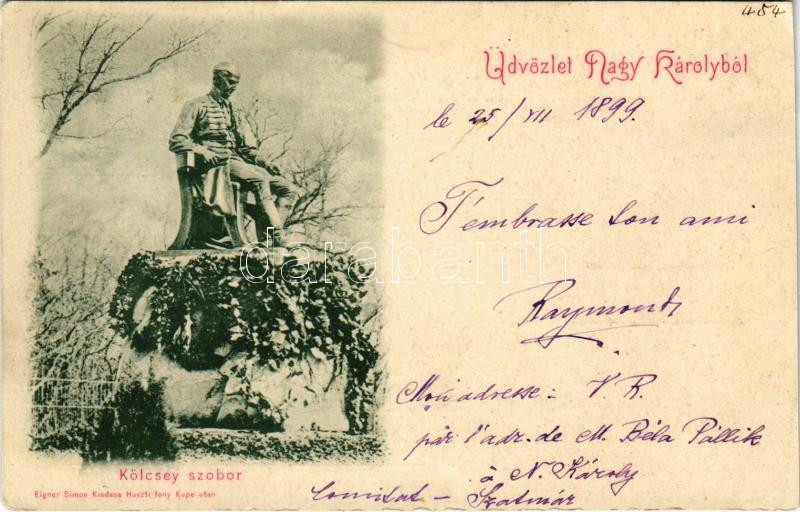 454
Üdvözlet Nagy Károlyból
le 25/VII 1899.
T'embrasse ton ami
Raymond
Mon adresse: V. R.
par l'adr. de M. Béla Pállik
à N. Károly
Comitat - Szatmár
darabanth
Kölcsey szobor
Eigner Simon Kiadasa Huszti feny Kepe utan